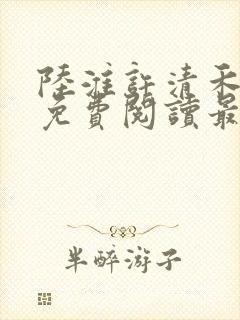 陸淮許清禾
免費閱讀最
半醉游子